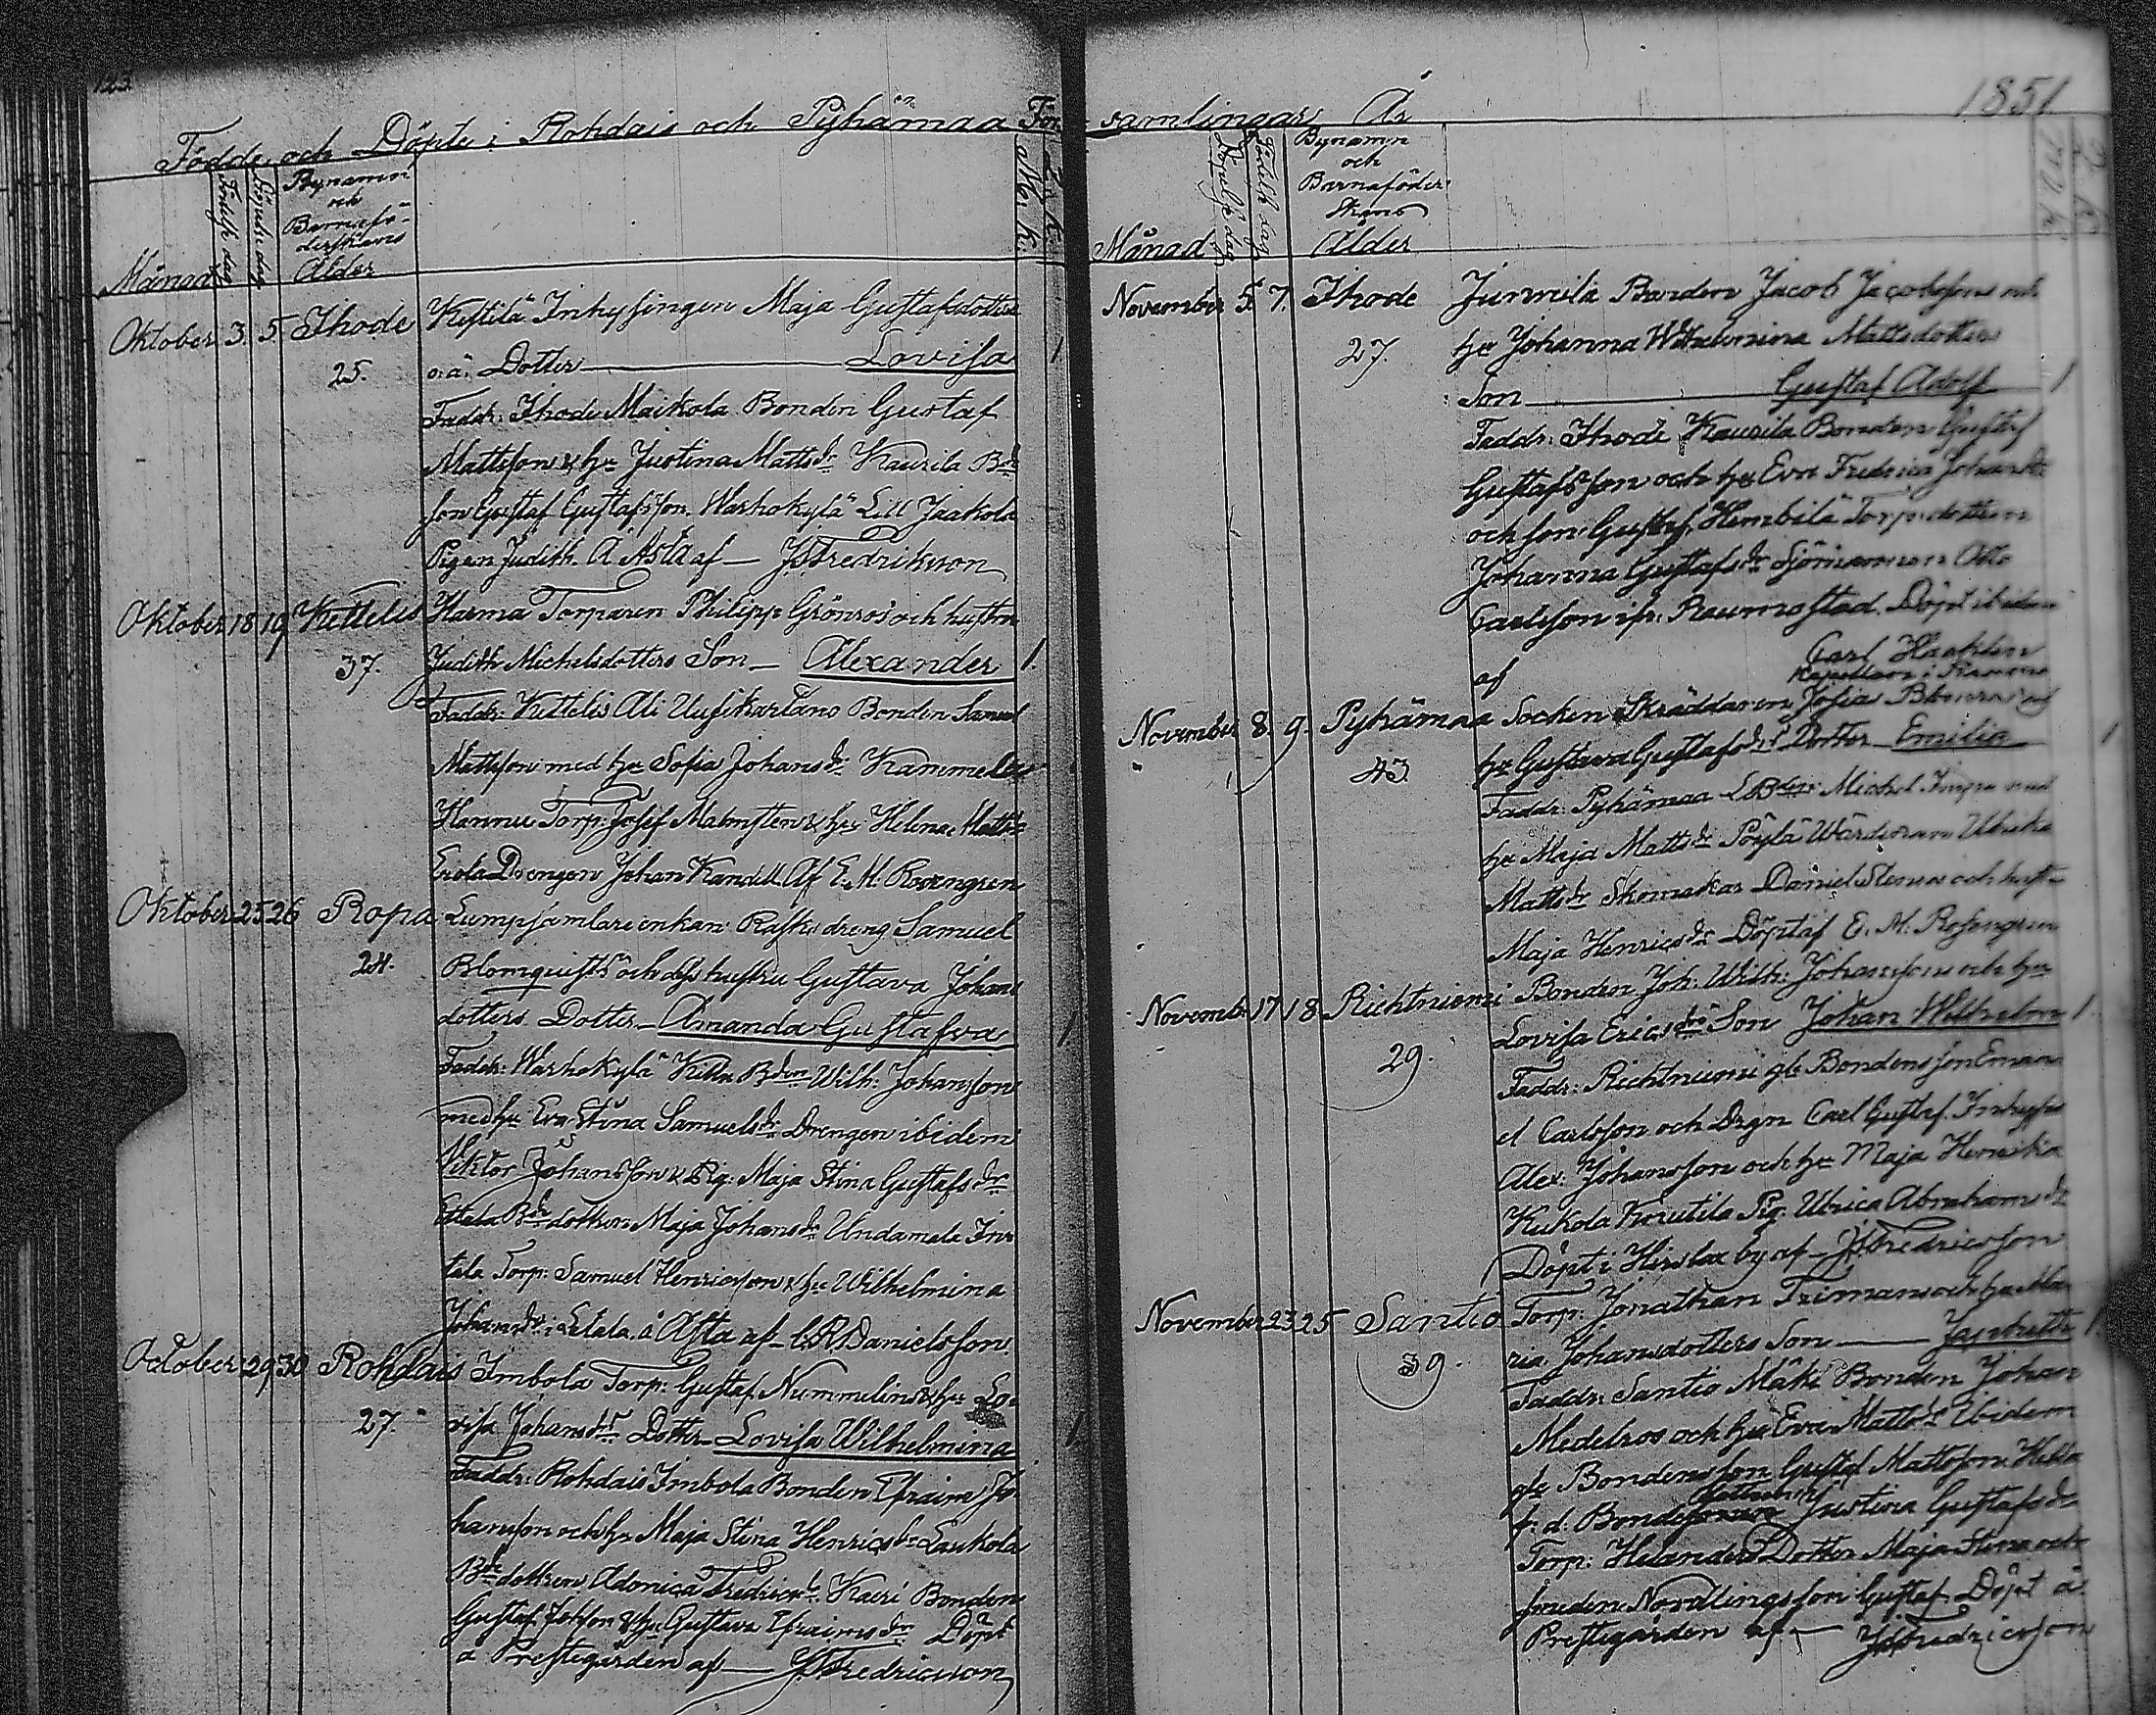 123.
Födde och Döpte i Rohdais och Pyhämaa För
Månad
Födelse dag
Döpelse dag
Bynamn
och
Barnafö-
derskans
Ålder
M.k.
Q.k.
Oktober 3. 5. Ihode Kestilä Inhysingen Maja Gustafsdotters
25. o.ä. Dotter Lovisa 1
Faddr: Ihode Maikola Bonden Gustaf
Mattsson & hu Justina Mattsdr Kaurila Bde
son Gustaf Gustafsson. Warhokylä Lill Jaakola
Pigan Judith. Å Asta af — JFredriksson
Oktober 18 19 Kettelis Harma Torparen Philipp Grönros och hustru
37. Judith Michelsdotters Son — Alexander 1.
Faddr: Kettelis Ali Uusikartano Bonden Samuel
Mattsson med hu Sofia Johansdr Kammela
Hannu Torp: Josef Malmsten & hu Helena Mattsdr
Erola Drengen Johan Kandell Af E. M. Rosengren
Oktober 25 26 Ropa Lumpsamlare enkan Rasku dreng Samuel
24. Blomquists och dess hustru Gustava Johans
dotters Dotter — Amanda Gustafva 1
Faddr: Warhokylä Bden Wilh: Johansson
med hu Eva Stina Samuelsdr Drengen ibidem
Viktor Johansson & Pig: Maja Stina Gustafsdr
Bde dottren Maja Johansdr Undamala Inn
tala Torp: Samuel Henricsson & hu Wilhelmina
Johansdr i Letala å Asta af — Danielsson
October 29 30 Rohdais Imbola Torp: Gustaf Nummelins & hu Lo-
27. visa Johansdrs Dotter — Lovisa Wilhelmina 1.
Faddr: Rohdais Imbola Bonden Efraim Jo
hansson och hu Maja Stina Henricsdr Laukola
Bde dottren Adonica Fredricsdr Kairi Bonden
Gustaf Johsson & hu Gustava Efraimsdr Döpt
å Prestegården af — JFredricsson
samlingar År 1851
Månad
Döpelse dag
Födelse dag
Bynamn
och
Barnaföder-
skans
Ålder
M.k.
Q.k.
November 5. 7. Ihode Junnila Bonden Jacob Jacobssons och
27. hu Johanna Wilhelmina Mattsdotters
Son Gustaf Adolf 1
Faddr: Ihode Kaurila Bonden Gustaf
Gustafsson och hu Eva Fredrica Johansdr
och son Gustaf, Hembilä Torp: dottren
Johanna Gustafsdr Sjömannen Otto
Carlsson ifr. Raumo stad. Döpt ibidem
af Carl Haahtin
Kapellan i Raumo
November 8. 9. Pyhämaa Socken Skräddaren Josia Blomros och
43. hu Gustava Gustafsdrs Dotter Emilia 1
Faddr: Pyhämaa Michel med
hu Maja Mattsdr Pöylä Wärdinnan Ulrika
Mattsdr Skomakar Daniel Stenros och hustru
Maja Henricsdr Döpt af E. M. Rosengren
November 17 18 Richtniemi Bonden Joh: Wilh: Johanssons och hu
29. Lovisa Ericsdrs Son Johan Wilhelm 1.
Faddr: Richtniemi gle Bondens son Emanu
el Carlsson och Drgn Carl Gustaf. Inhyses
Alex: Johansson och hu Maja Henrika
Kukola Knutila Pig: Ulrica Abrahamsdr
Döpt i Hirslax by af — JFredricsson
November 23 25 Santio Torp: Jonathan Frimans och hu Ma
39. ria Johansdotters Son — 1
Faddr: Santio Mäki Bonden Johan
Medelros och hu Eva Mattsdr Ibidem
gle Bondens son Gustaf Mattsson Heklä
f. d. Bonde Justina Gustafsdr
Torp: Helanders Dotter Maja Stina och
smeden Nordlings son Gustaf. Döpt å
Prestegården af — JFredricsson